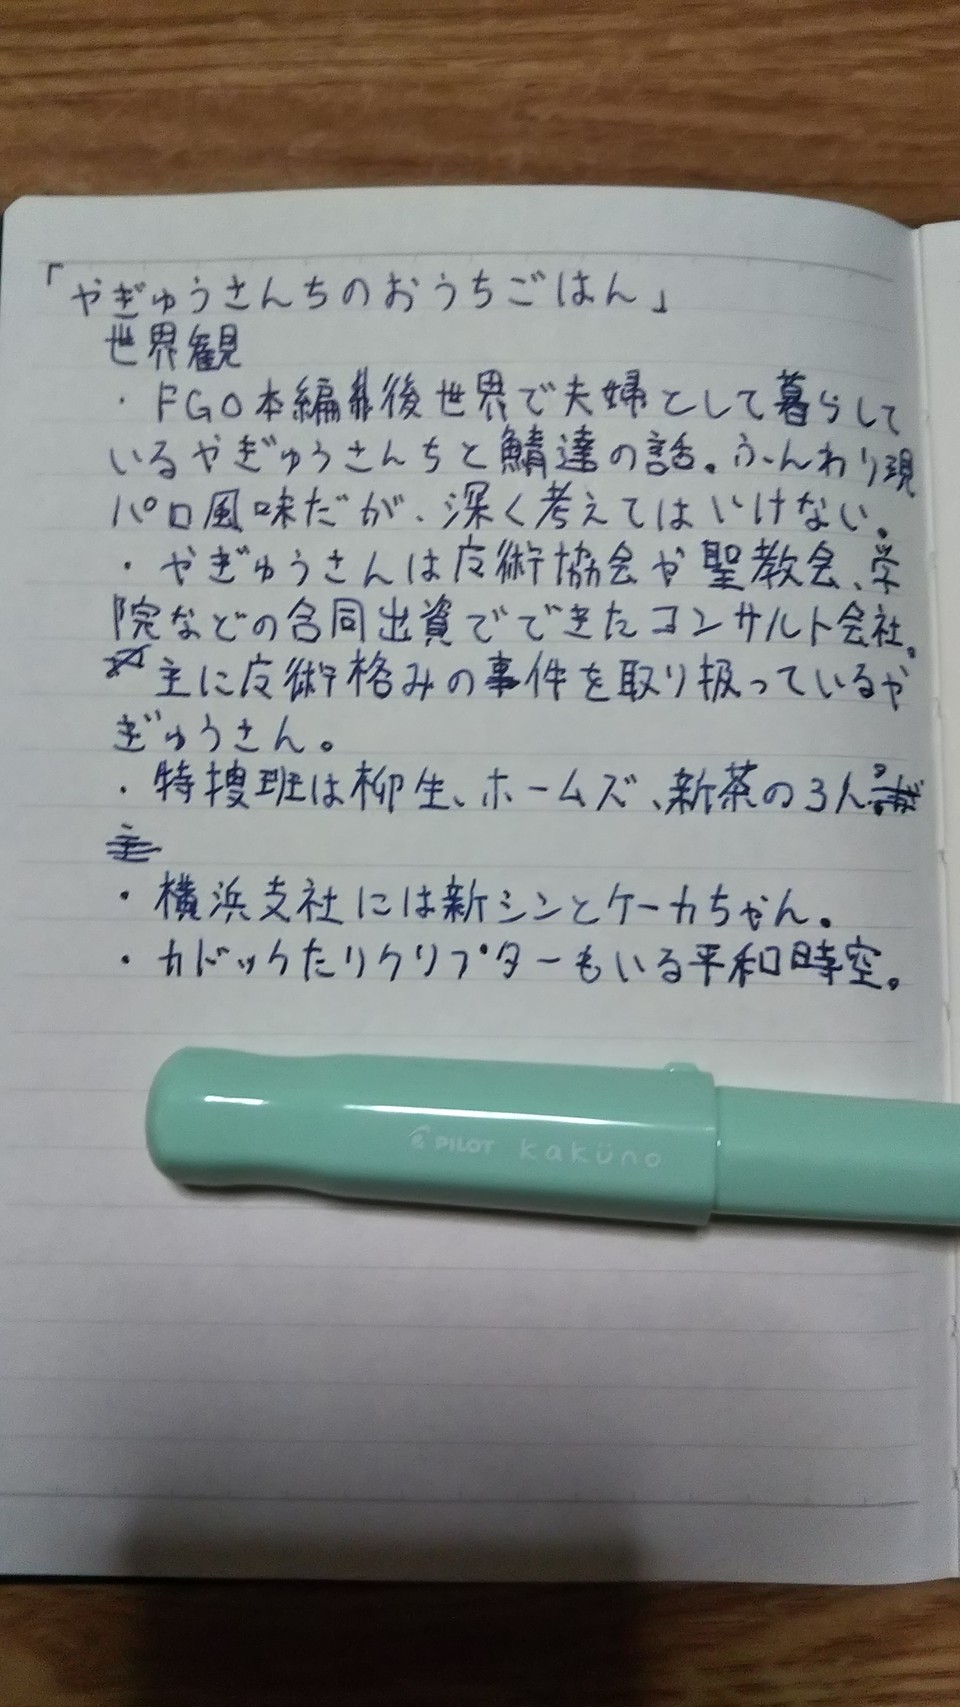 「やぎゅうさんちのおうちごはん」
世界観
・FGO本編後世界で夫婦として暮らして
いるやぎゅうさんちと鯖達の話。ふんわり現
パロ風味だが、深く考えてはいけない。
・やぎゅうさんは广術協会や聖教会、学
院などの合同出資でできたコンサルト会社。
主に广術格みの事件を取り扱っているや
ぎゅうさん。
・特捜班は柳生、ホームズ、新茶の3人。
・横浜支社には新シンとケーカちゃん。
・カドックたりクリプターもいる平和時空。
PILOT kaküno